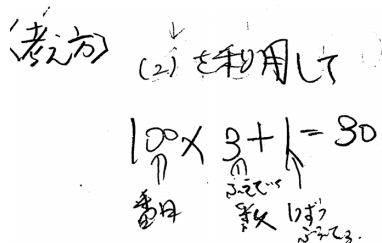 〈考え方〉
(2)を利用して
100×3+1=30
番目
ふえていく
数
1ずつ
ふえてる.